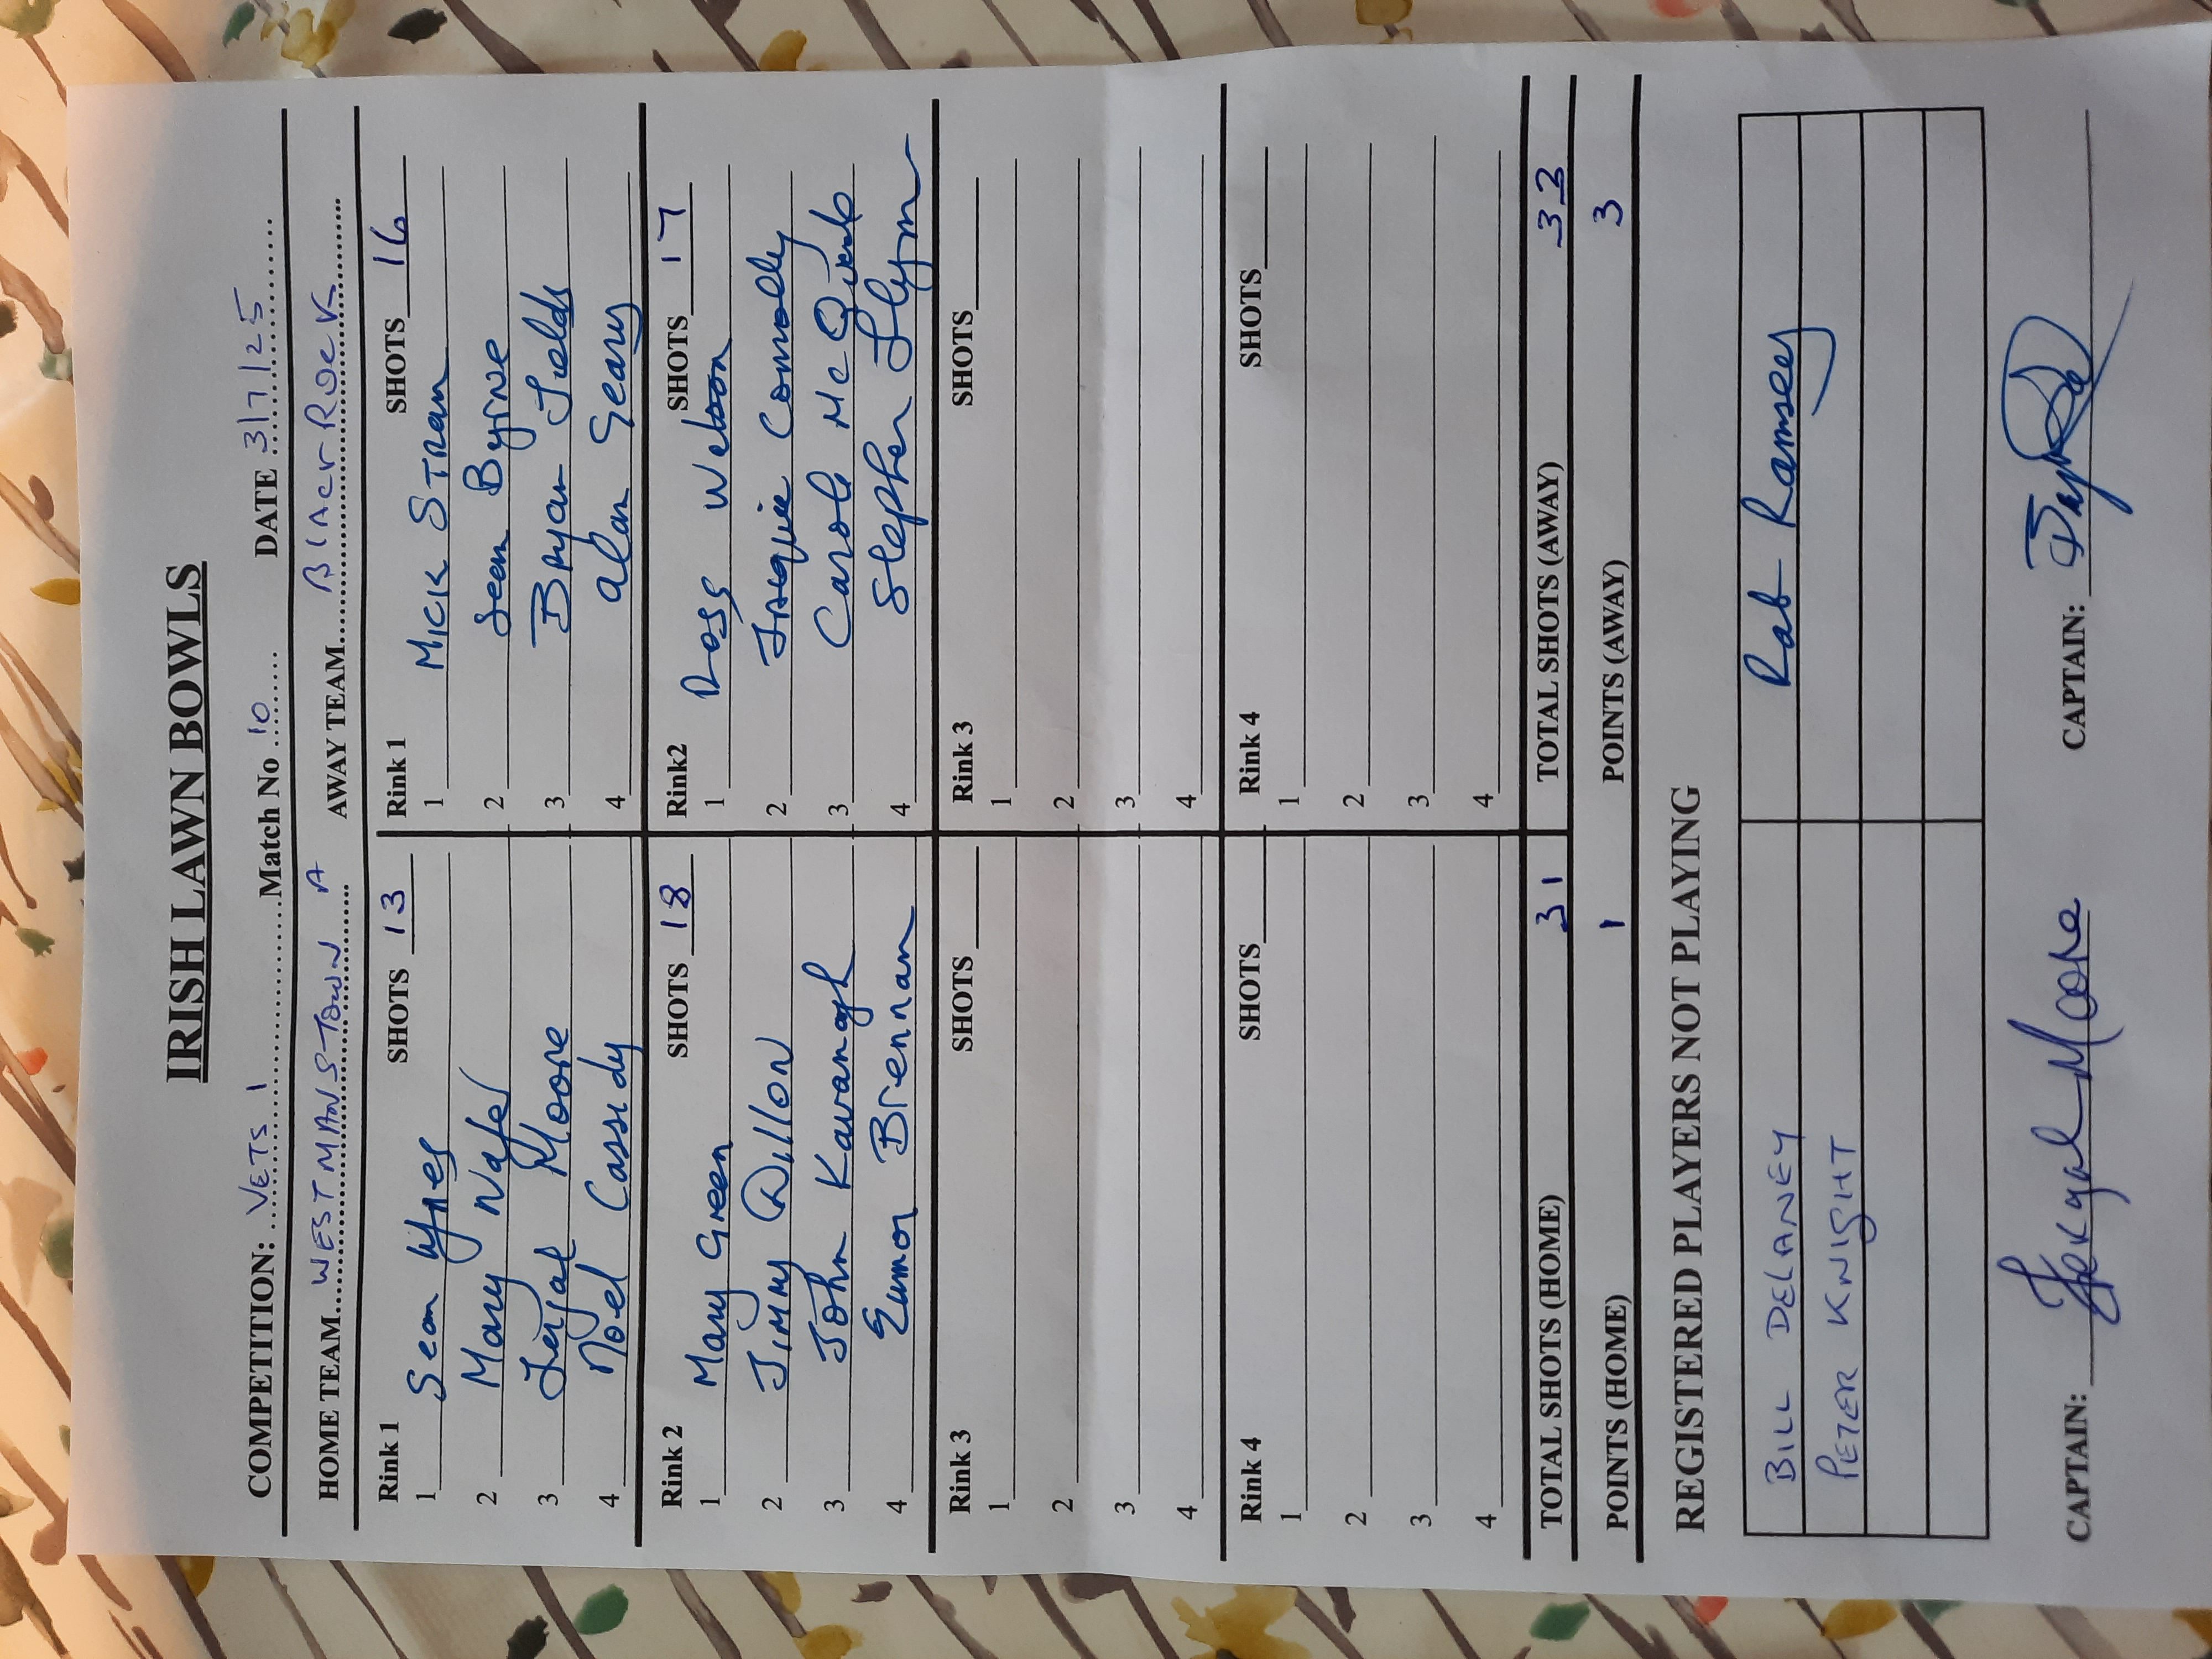 IRISH LAWN BOWLS
COMPETITION: VETS 1 Match No 10 DATE 3/7/25
HOME TEAM WESTMANSTOWN A AWAY TEAM BlAcrRocK
Rink 1 SHOTS 13
1 Sean Wynes
2 Mary
3 Fergal Moore
4 Noel Cassidy
Rink 1 SHOTS 16
1 MICK STRAN
2 Sean Byrne
3 Bryan Fields
4 Alan Geary
Rink 2 SHOTS 18
1 Mary Green
2 Jimmy Dillon
3 John Kavanagh
4 Eamon Brennan
Rink2 SHOTS 17
1 Ross
2 Jacquie Connolly
3 Carole McQuirk
4 Stephen Flynn
Rink 3 SHOTS
1
2
3
4
Rink 3 SHOTS
1
2
3
4
Rink 4 SHOTS
1
2
3
4
Rink 4 SHOTS
1
2
3
4
TOTAL SHOTS (HOME) 31 TOTAL SHOTS (AWAY) 33
POINTS (HOME) 1 POINTS (AWAY) 3
REGISTERED PLAYERS NOT PLAYING
BILL DELANEY Rab Ramsey
PETER KNIGHT
CAPTAIN: Fergal Moore CAPTAIN: